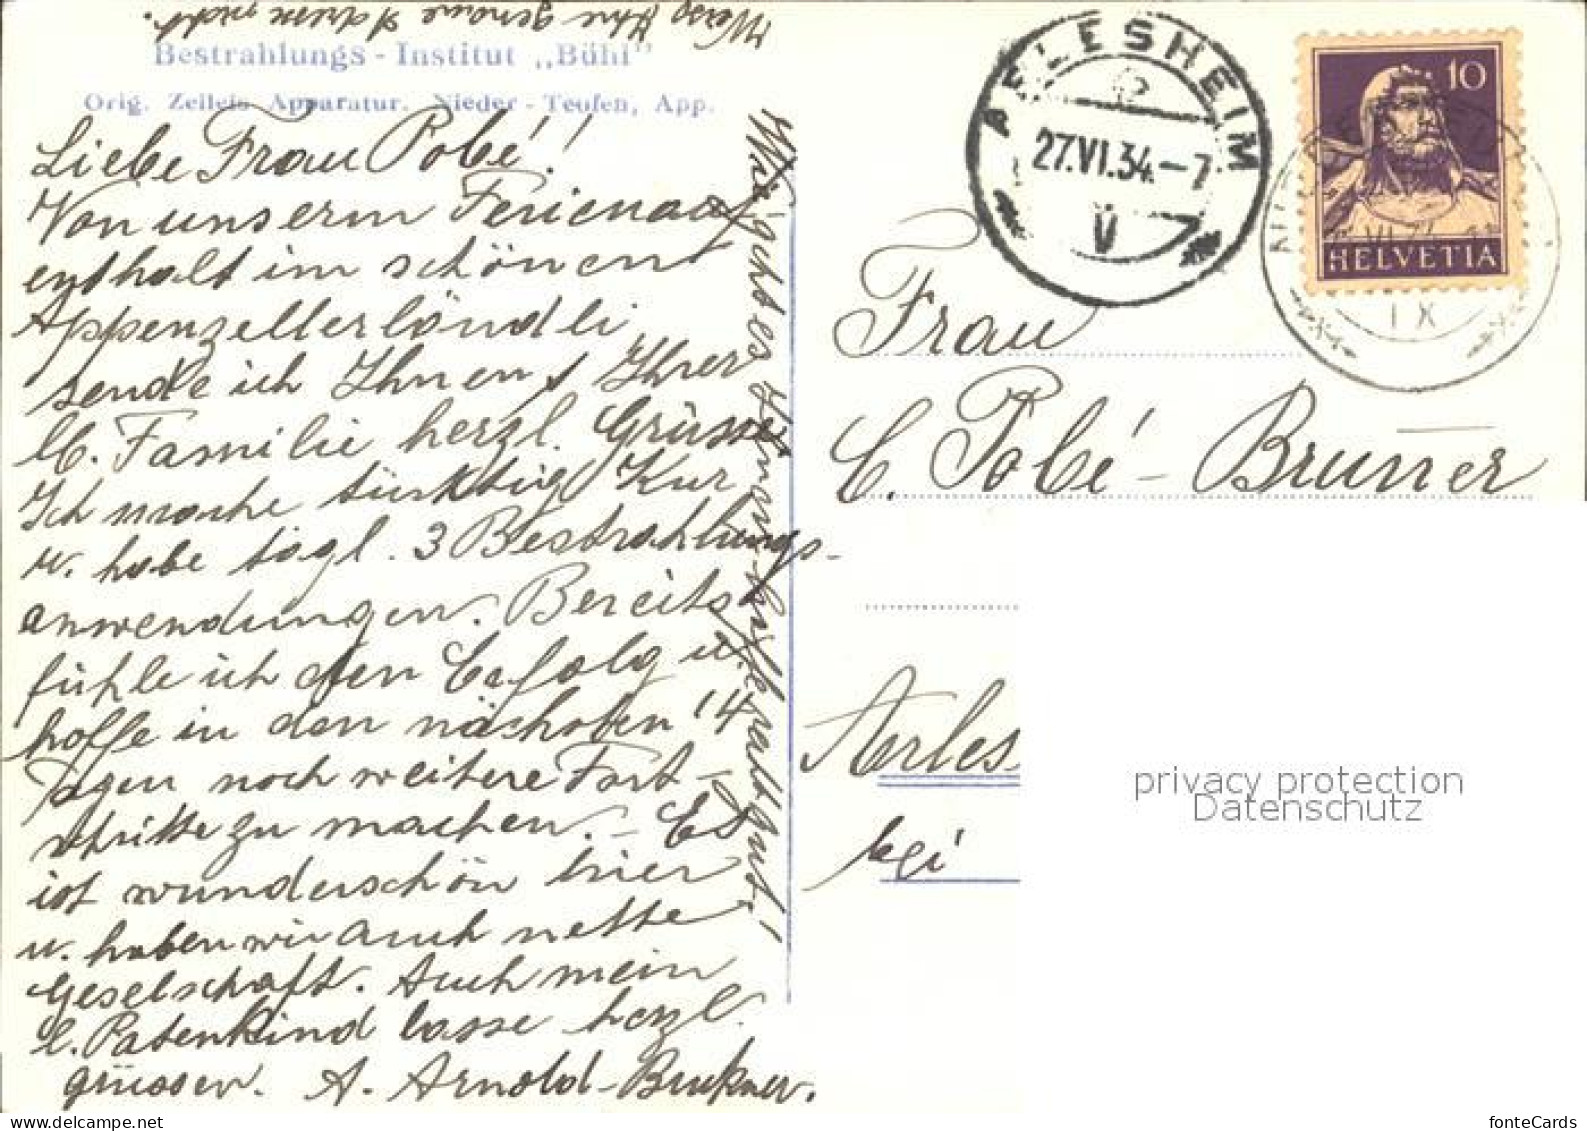 Weiss Ihre genaue Adresse nicht.
Bestrahlungs - Institut „Bühl"
Orig. Zeileis Apparatur. Nieder - Teufen, App.
Liebe Frau Pobé!
Von unserm Ferienauf
enthalt im schönen
Appenzellerländli
sende ich Ihnen & Ihrer
lb. Familie herzl. Grüsse
Ich mache tüchtig Kur
u. habe tägl. 3 Bestrahlungs-
anwendungen. Bereits
fühle ich den Erfolg u.
hoffe in den nächsten 14
Tagen noch weitere Fort-
schritte zu machen. - Es
ist wunderschön hier
u. haben wir auch nette
Gesellschaft. Auch mein
l. Patenkind lasse herzl.
grüssen. A. Arnold-Brukner.
Wie geht es Ihnen hoffe recht gut!
ARLESHEIM
27.VI.34.-7
V
10
HELVETIA
IX
Frau
C. Pobé - Brunner
Arles
bei
privacy protection
Datenschutz
fonteCards